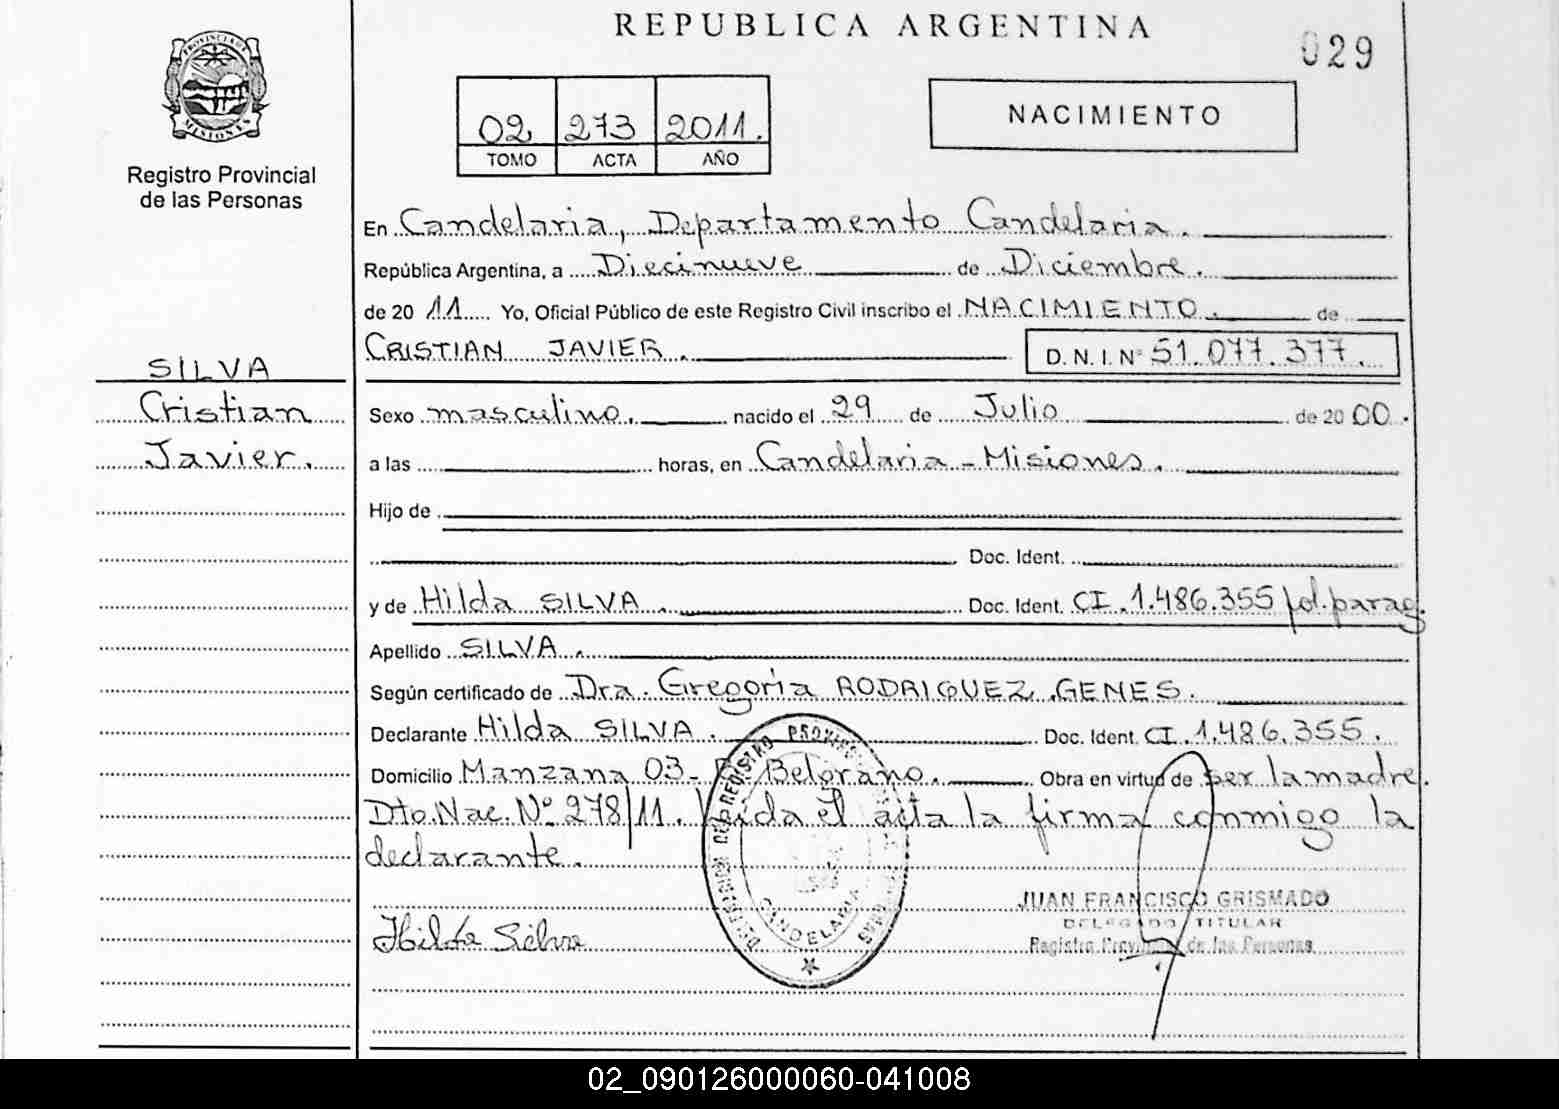 REPUBLICA ARGENTINA
029
PROVINCIA DE MISIONES
Registro Provincial
de las Personas
02 273 2011.
TOMO ACTA AÑO
NACIMIENTO
En Candelaria, Departamento Candelaria.
República Argentina, a Diecinueve de Diciembre.
de 20 11 Yo, Oficial Público de este Registro Civil inscribo el NACIMIENTO. de
CRISTIAN JAVIER. D. N. I. N° 51.077.377.
SILVA
Cristian
Javier.
Sexo masculino. nacido el 29 de Julio de 20 00.
a las horas, en Candelaria - Misiones.
Hijo de
Doc. Ident.
y de Hilda SILVA. Doc. Ident. CI. 1.486.355 pol. parag.
Apellido SILVA.
Según certificado de Dra. Gregoria RODRIGUEZ GENES.
Declarante Hilda SILVA. Doc. Ident. CI. 1.486.355.
Domicilio Manzana 03- Bº Belgrano. Obra en virtud de ser la madre.
Dto. Nac. Nº 278/11. Leída el acta la firma conmigo la
declarante.
Hilda Silva
DELEGACION DEL REGISTRO PROVINCIAL DE LAS PERSONAS
CANDELARIA
JUAN FRANCISCO GRISMADO
DELEGADO TITULAR
Registro Provincial de las Personas
02_090126000060-041008